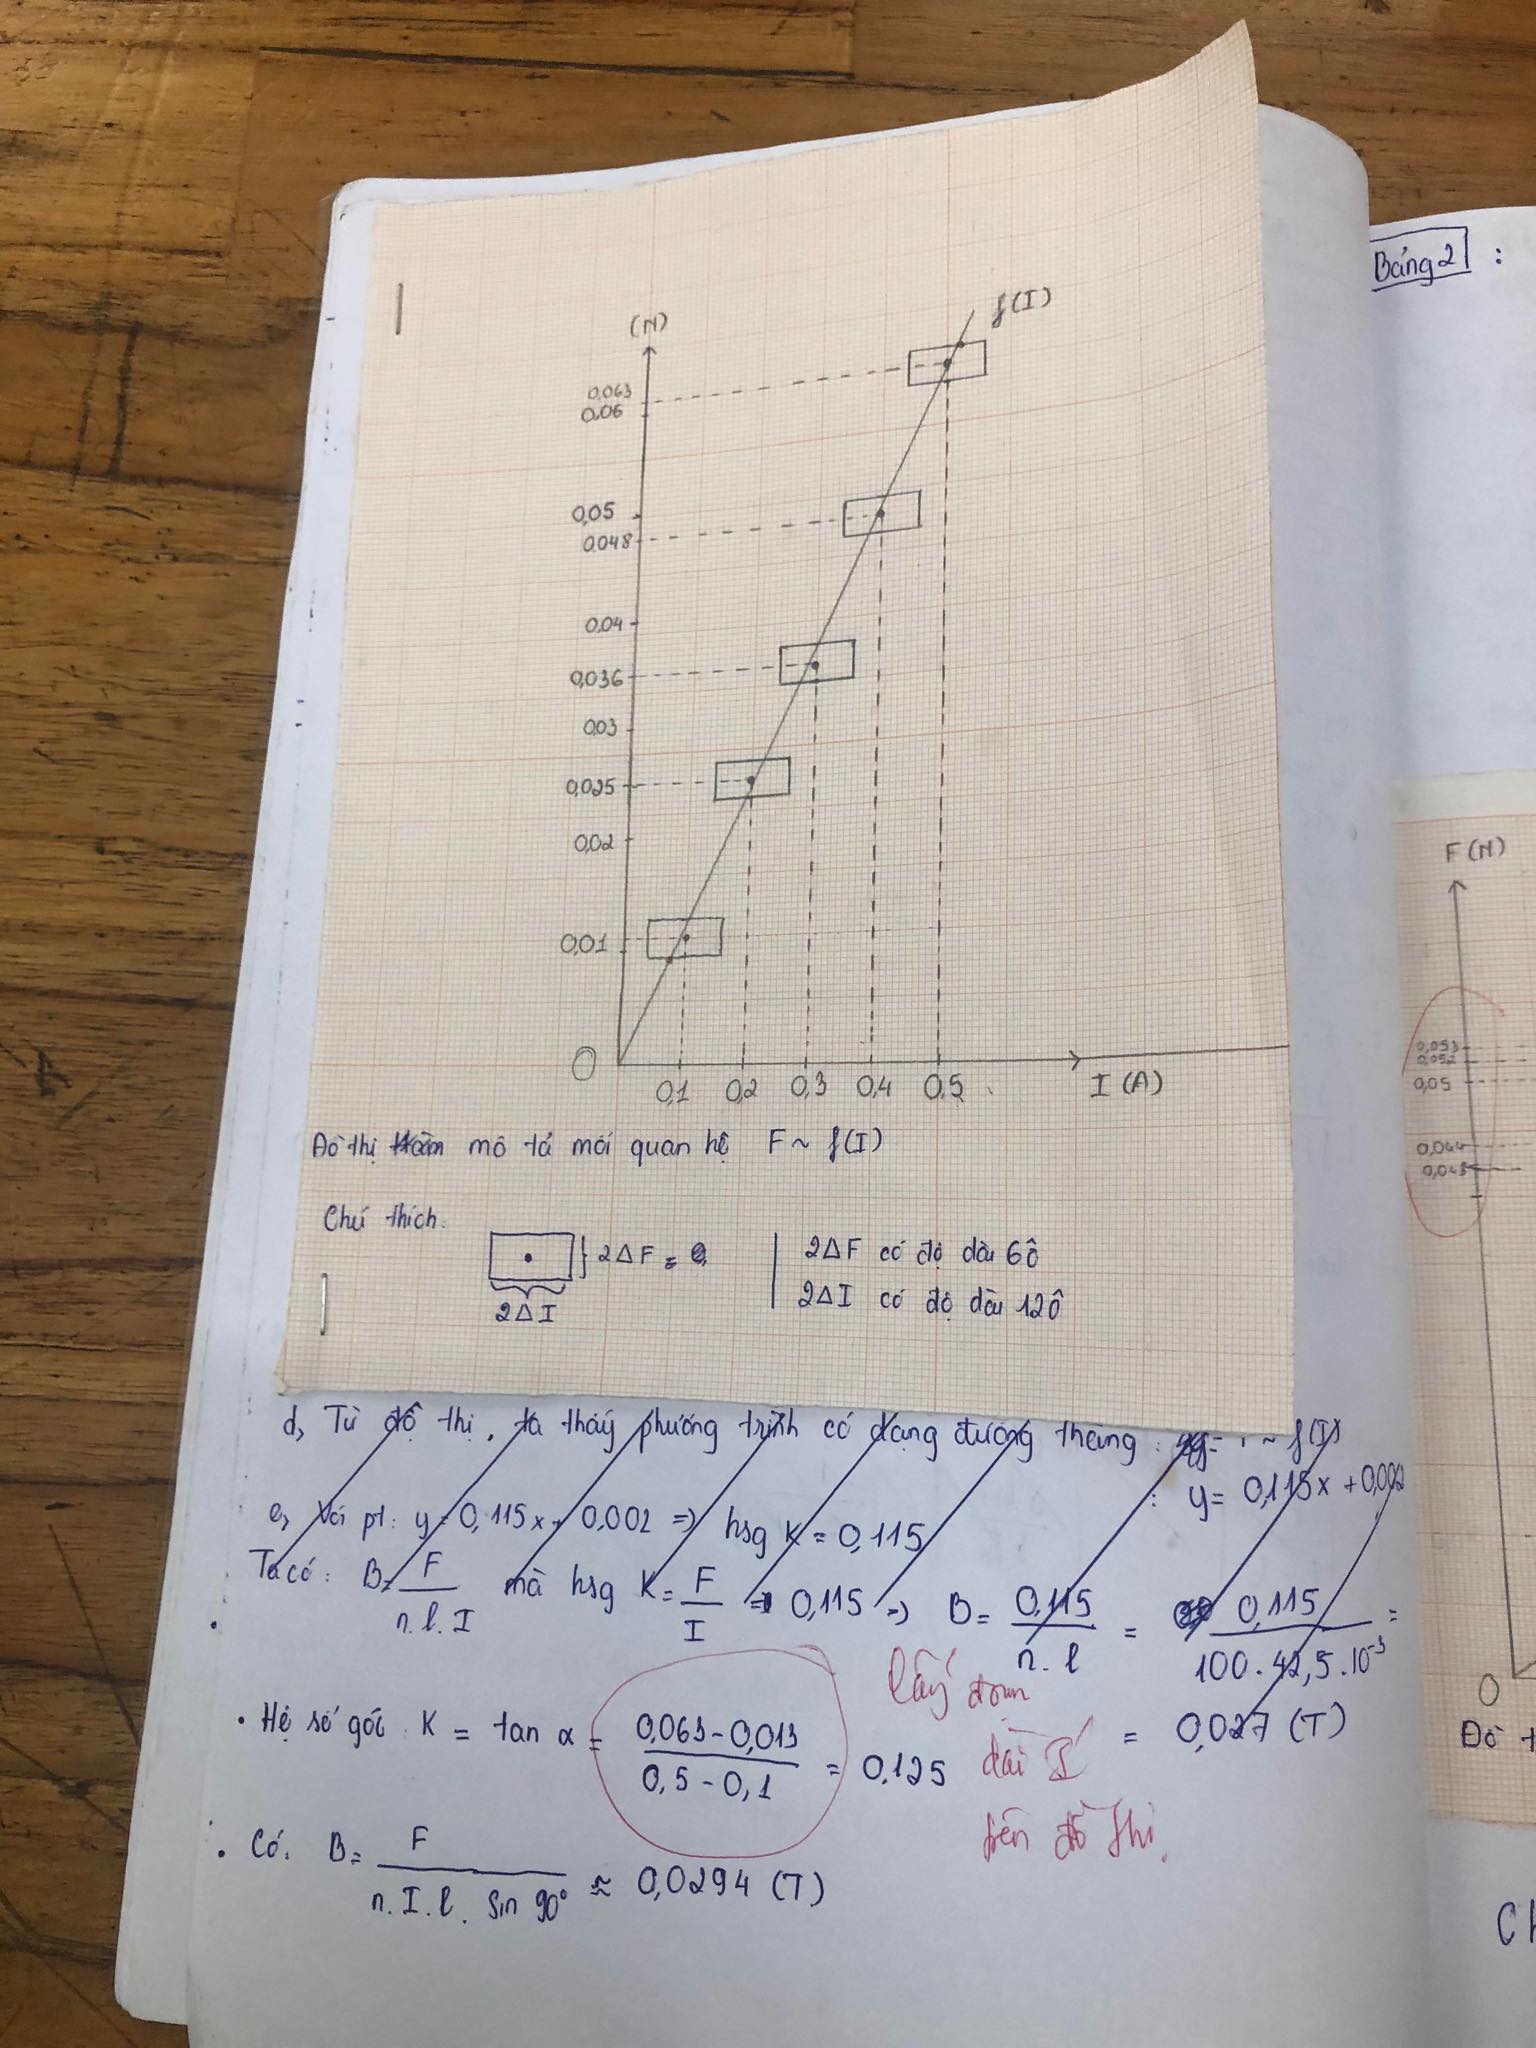 Bảng 2 :
(N)
f(I)
0,063
0,06
0,05
0,048
0,04
0,036
0,03
0,025
0,02
0,01
O
0,1 0,2 0,3 0,4 0,5
I (A)
Đồ thị mô tả mối quan hệ F ~ f(I)
Chú thích.
2ΔF =
2ΔI
2ΔF có độ dài 6 ô
2ΔI có độ dài 12 ô
d, Từ đồ thị, ta thấy phương trình có dạng đường thẳng : ~ f(I)
: y = 0,115x + 0,002
e, Với pt: y = 0,115x + 0,002 => hsg K = 0,115
Ta có: B = F / n.l.I mà hsg K = F / I = 0,115 => B = 0,115 / n.l = 0,115 / 100.42,5.10⁻³ =
= 0,027 (T)
• Hệ số góc K = tan α = 0,063-0,013 / 0,5-0,1 = 0,125
lấy đoạn
dài
trên đồ thị.
• Có: B = F / n.I.l.sin 90° ≈ 0,0294 (T)
F (N)
0,053
0,052
0,05
0,044
0,043
O
Đồ t
Ch